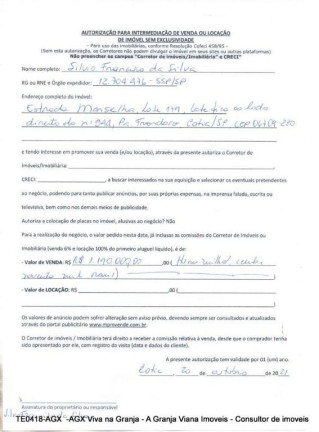 AUTORIZAÇÃO PARA INTERMEDIAÇÃO DE VENDA OU LOCAÇÃO
DE IMÓVEL SEM EXCLUSIVIDADE
- Para uso das imobiliárias, conforme Resolução Cofeci 458/95 -
(Sem esta autorização, os Corretores não podem divulgar o imóvel em seus sites ou outras plataformas)
Não preencher os campos "Corretor de Imóveis/Imobiliária" e CRECI"
Nome completo: Silvio Francisco da Silva
RG ou RNE e Órgão expedidor: 12.704.476 - SSP/SP
Endereço completo do imóvel:
Estrada Lote 11A, Lote ao lado
direito do nº Cotia/SP CEP
e tendo interesse em promover sua venda (e/ou locação), através da presente autoriza o Corretor de
Imóveis/Imobiliária:
CRECI: , a buscar interessados na sua aquisição e selecionar os eventuais pretendentes
ao negócio, podendo para tanto publicar anúncios, por suas próprias expensas, na imprensa falada, escrita ou
televisiva, bem como nos demais meios de publicidade.
Autoriza a colocação de placas no imóvel, alusivas ao negócio? Não
Para a realização do negócio, o valor pedido nesta data, já inclusas as comissões do Corretor de Imóveis ou
Imobiliária (venda 6% e locação 100% do primeiro aluguel líquido), é de:
- Valor de VENDA: R$ R$ 1.190.000,00 ,00 ( Hum milhão cento
noventa mil reais )
- Valor de LOCAÇÃO: R$ ,00 (
)
Os valores de anúncio podem sofrer alteração sem aviso prévio, devendo sempre ser consultados e atualizados
através do portal publicitário
O Corretor de Imóveis / Imobiliária terá direito a receber a comissão relativa à venda, desde que o comprador tenha
sido apresentado por ele, com registro da visita (data e dados do cliente).
A presente autorização tem validade por 01 (um) ano.
Cotia, 20 de outubro de 2021
Assinatura do proprietário ou responsável
TE0418-AGX -AGX Viva na Granja - A Granja Viana Imoveis - Consultor de imoveis